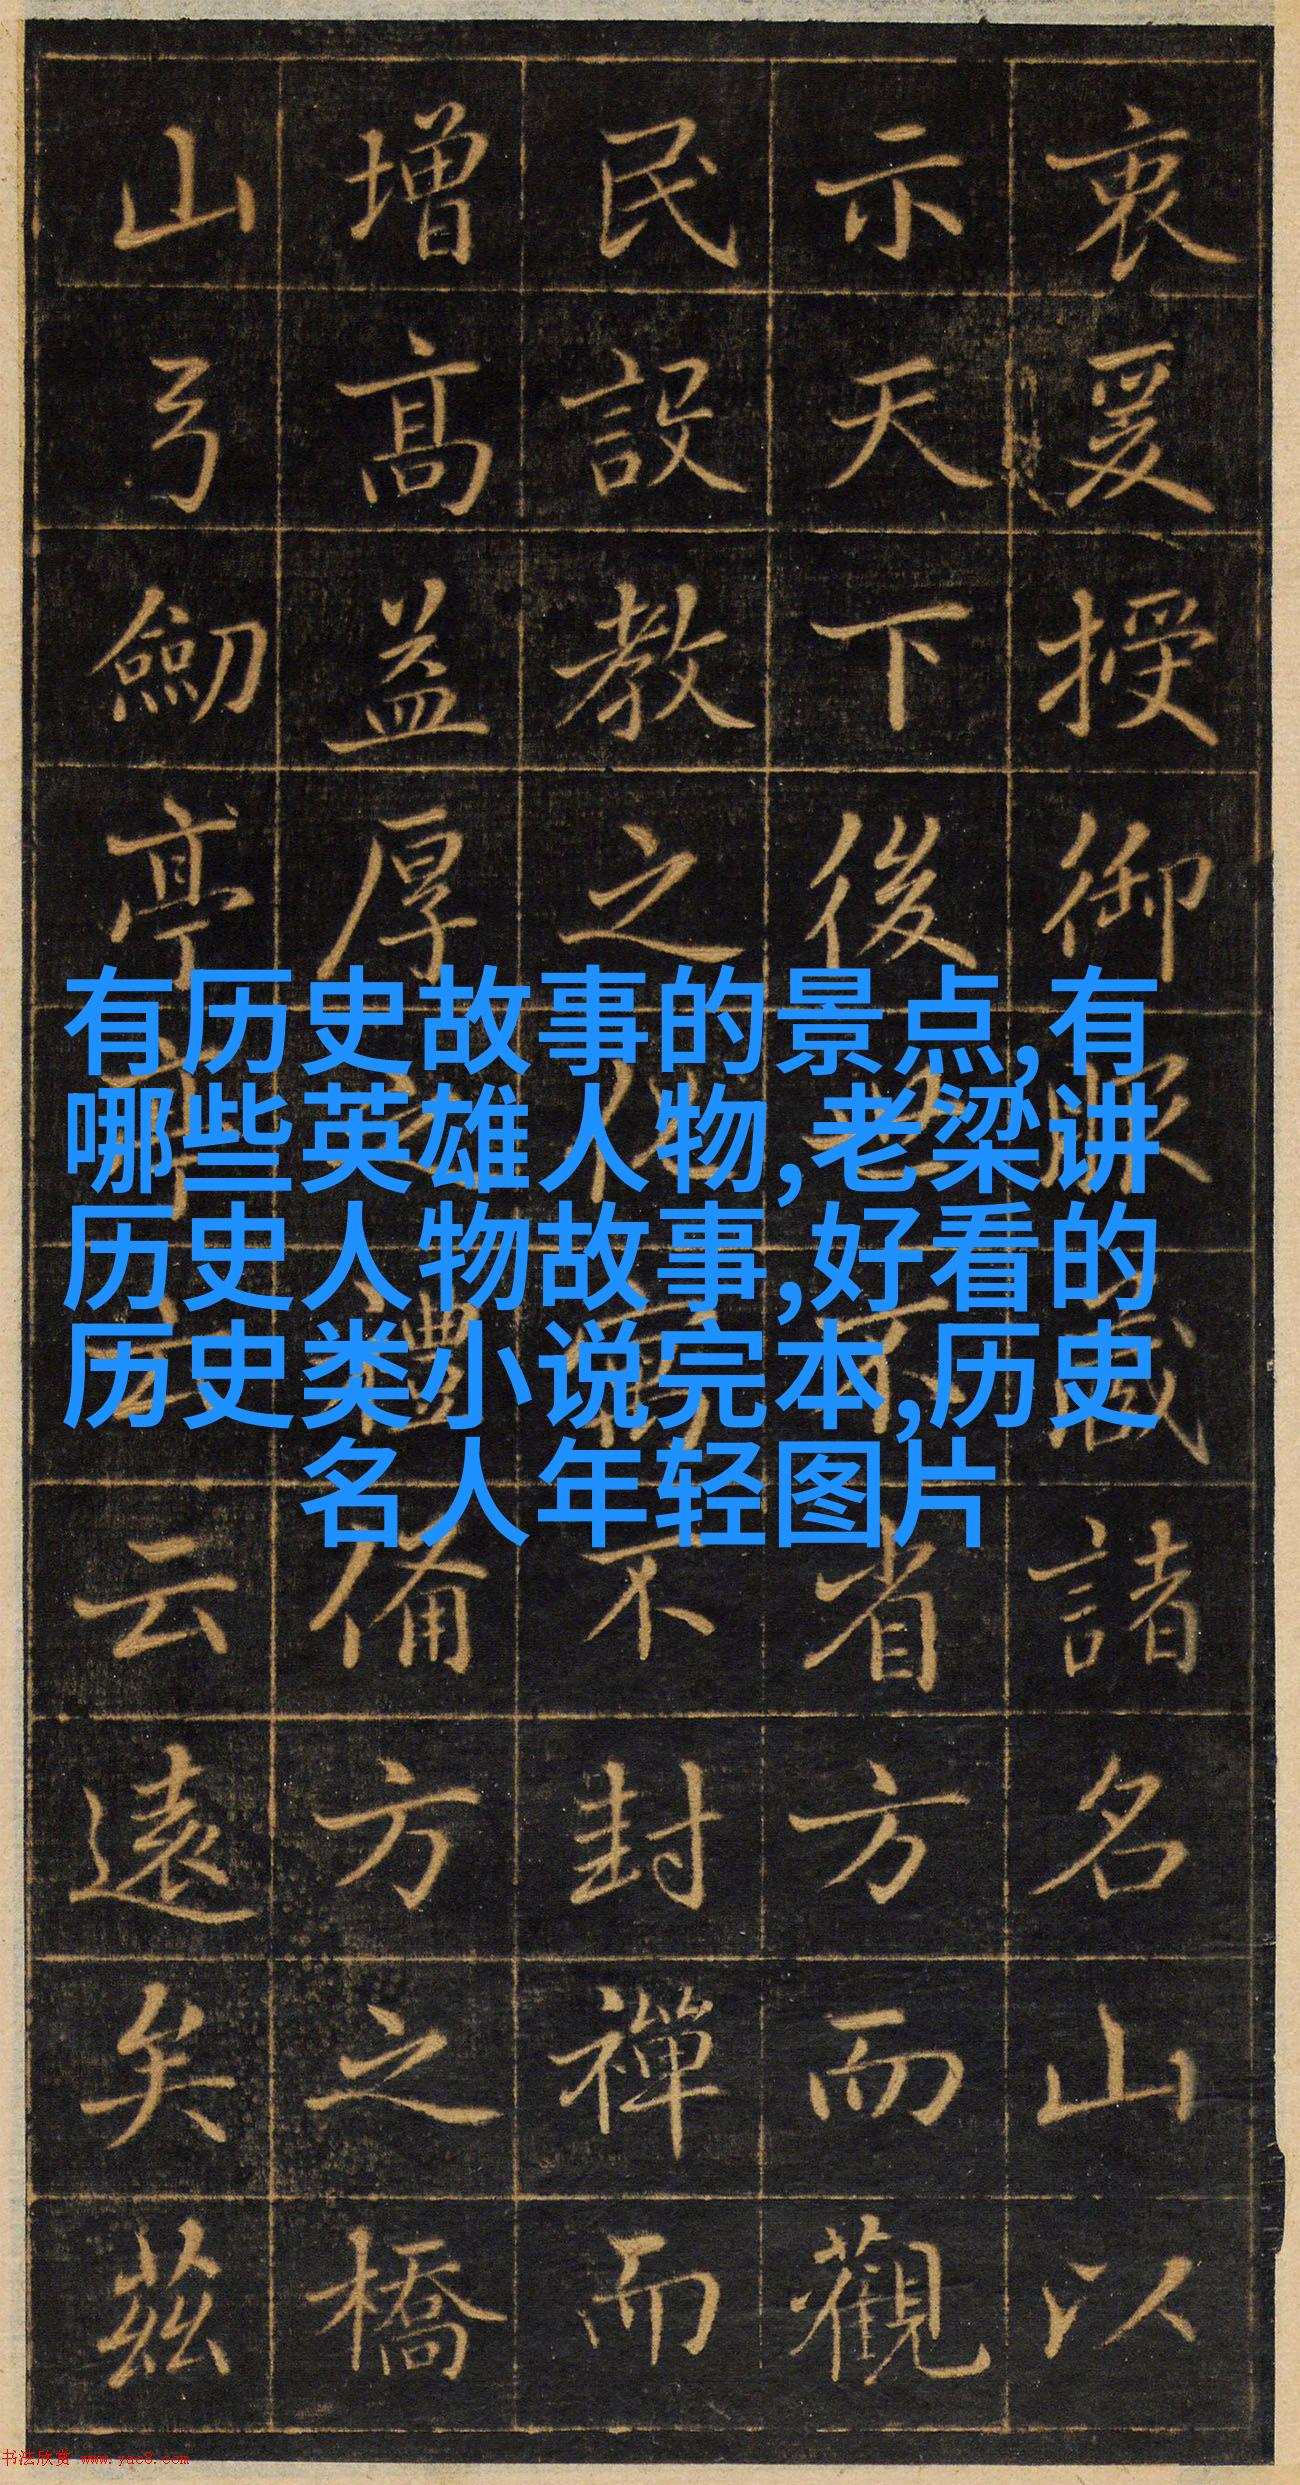 衷爰授御藏諸名山以
示天下後世不省方而觀
民設教之化不封禪而
增高益厚之禮備方之橋
山弓劒亭亭云云遠矣茲
有历史故事的景点,有
哪些英雄人物,老梁讲
历史人物故事,好看的
历史类小说完本,历史
名人年轻图片
书法欣赏 www.yac8.com